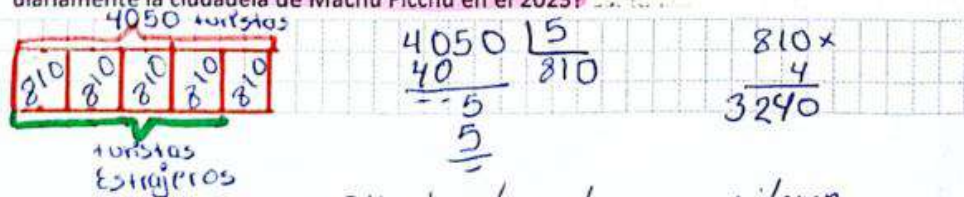 diariamente la ciudadela de Machu Picchu en el 2023?
4050 turistas
810 810 810 810 810
turistas
Estrajeros
4050 5
40 810
-- 5
5
810 x
4
3240